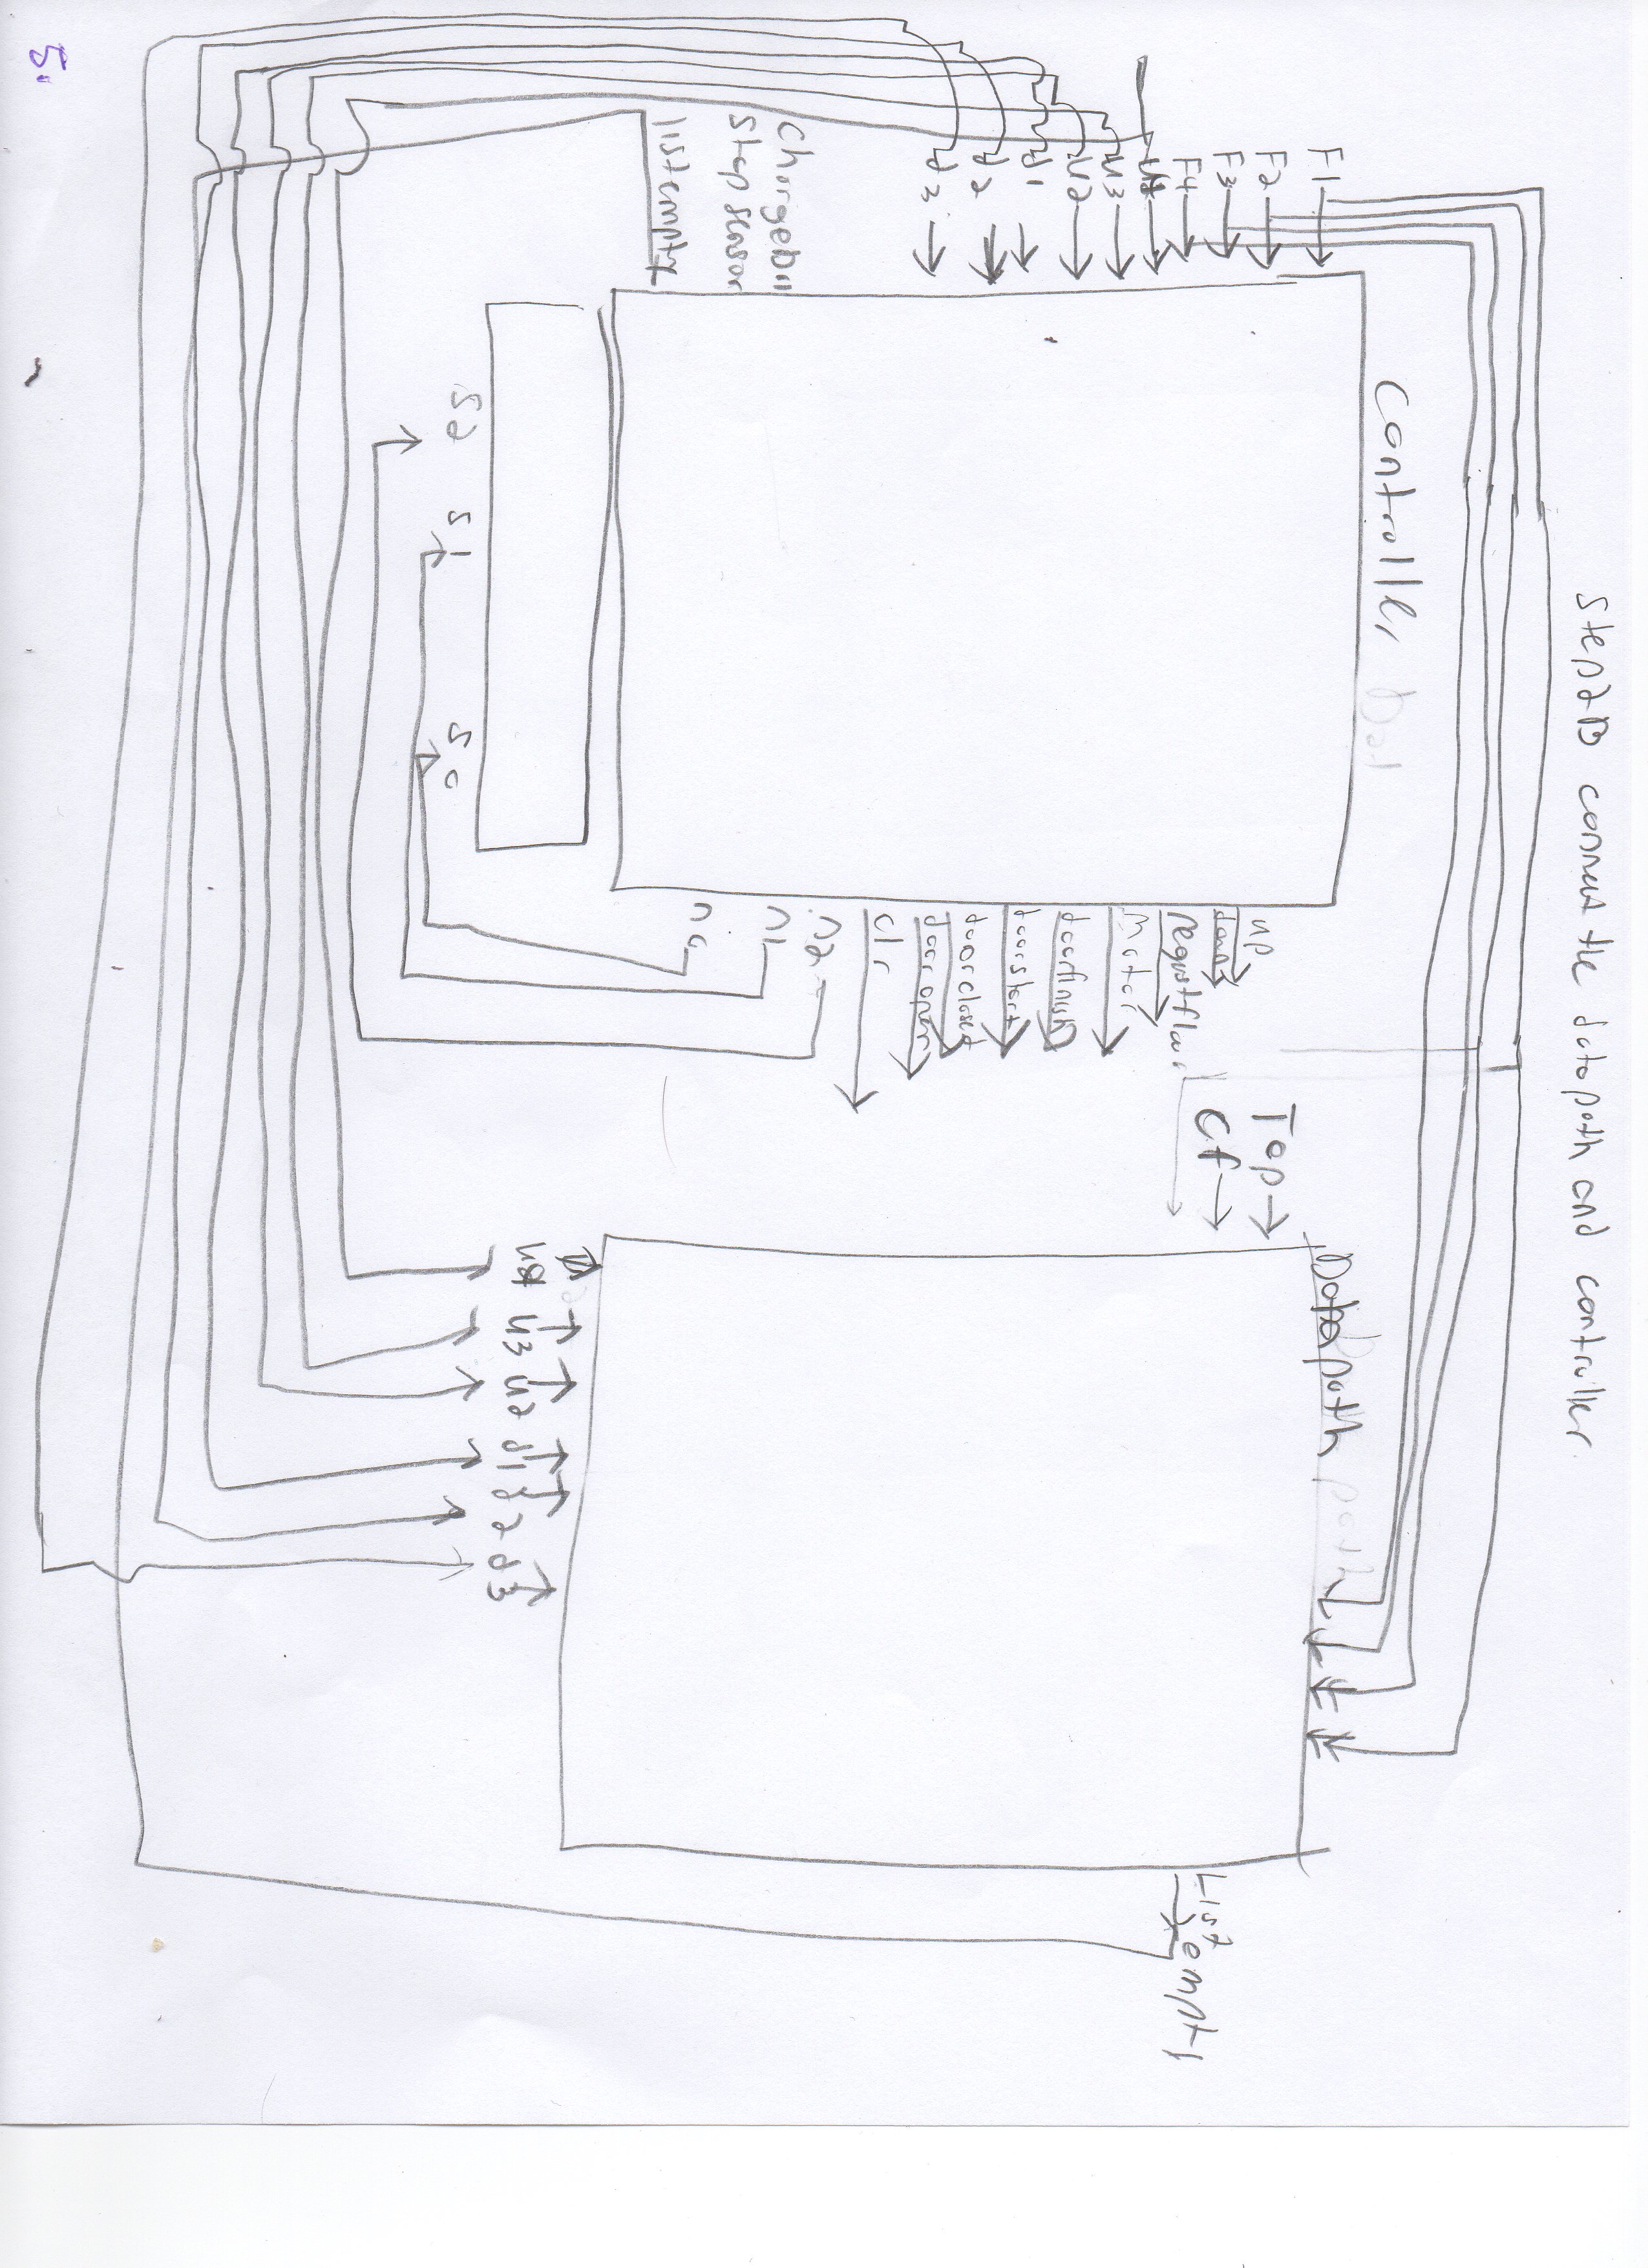 Step2B connect the datapath and controller
Controller
F1
F2
F3
F4
U4
U3
U2
d1
d2
d3
Chargebit
Stop sensor
listempty
up
down
Motor
doorfinish
doorstart
doorclose
dooropen
clr
n2
n1
n0
s2
s1
s0
Top
Cf
Datapath
U4
U3
U2
d1
d2
d3
List empty
5.